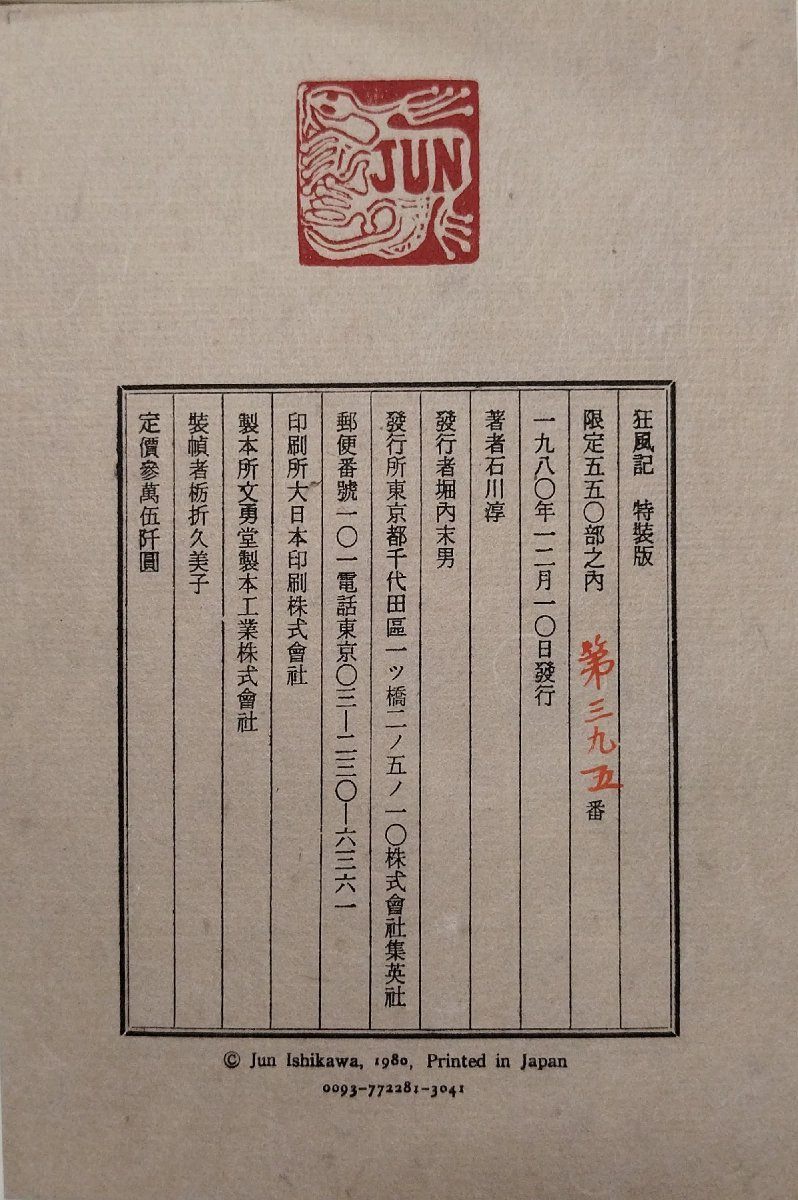 JUN
狂風記　特裝版
限定五五〇部之內　第三九五番
一九八〇年一二月一〇日發行
著者石川淳
發行者堀內末男
發行所東京都千代田區一ツ橋二ノ五ノ一〇株式會社集英社
郵便番號一〇一電話東京〇三―二三〇―六三六一
印刷所大日本印刷株式會社
製本所文勇堂製本工業株式會社
裝幀者栃折久美子
定價參萬伍阡圓
© Jun Ishikawa, 1980, Printed in Japan
0093-772281-3041